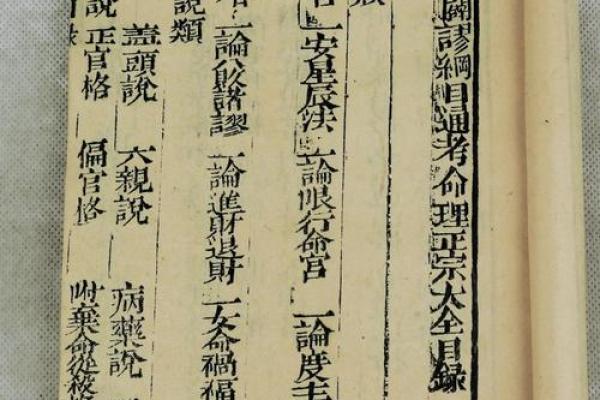 闢謬綱目通考命理正宗大全目錄
一安星辰法 一論限行命宮 一論度主
一論八敗諸謬 一論進財退財 一女命禍福
說類
蓋頭說 六親說 病藥說
說 正官格 偏官格 附棄命從殺格